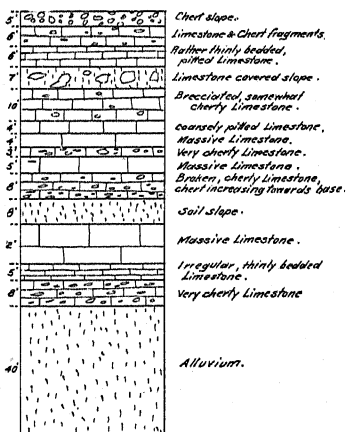 5' Chert slope.
6' Limestone & Chert fragments.
6' Rather thinly bedded,
pitted Limestone.
7' Limestone covered slope.
10' Brecciated, somewhat
cherty Limestone.
4' coarsely pitted Limestone,
4' Massive Limestone.
3' Very cherty Limestone.
5' Massive Limestone.
8' Broken, cherty Limestone,
chert increasing towards base.
8' Soil slope.
2' Massive Limestone.
5' Irregular, thinly bedded
Limestone.
8' Very cherty Limestone
40' Alluvium.